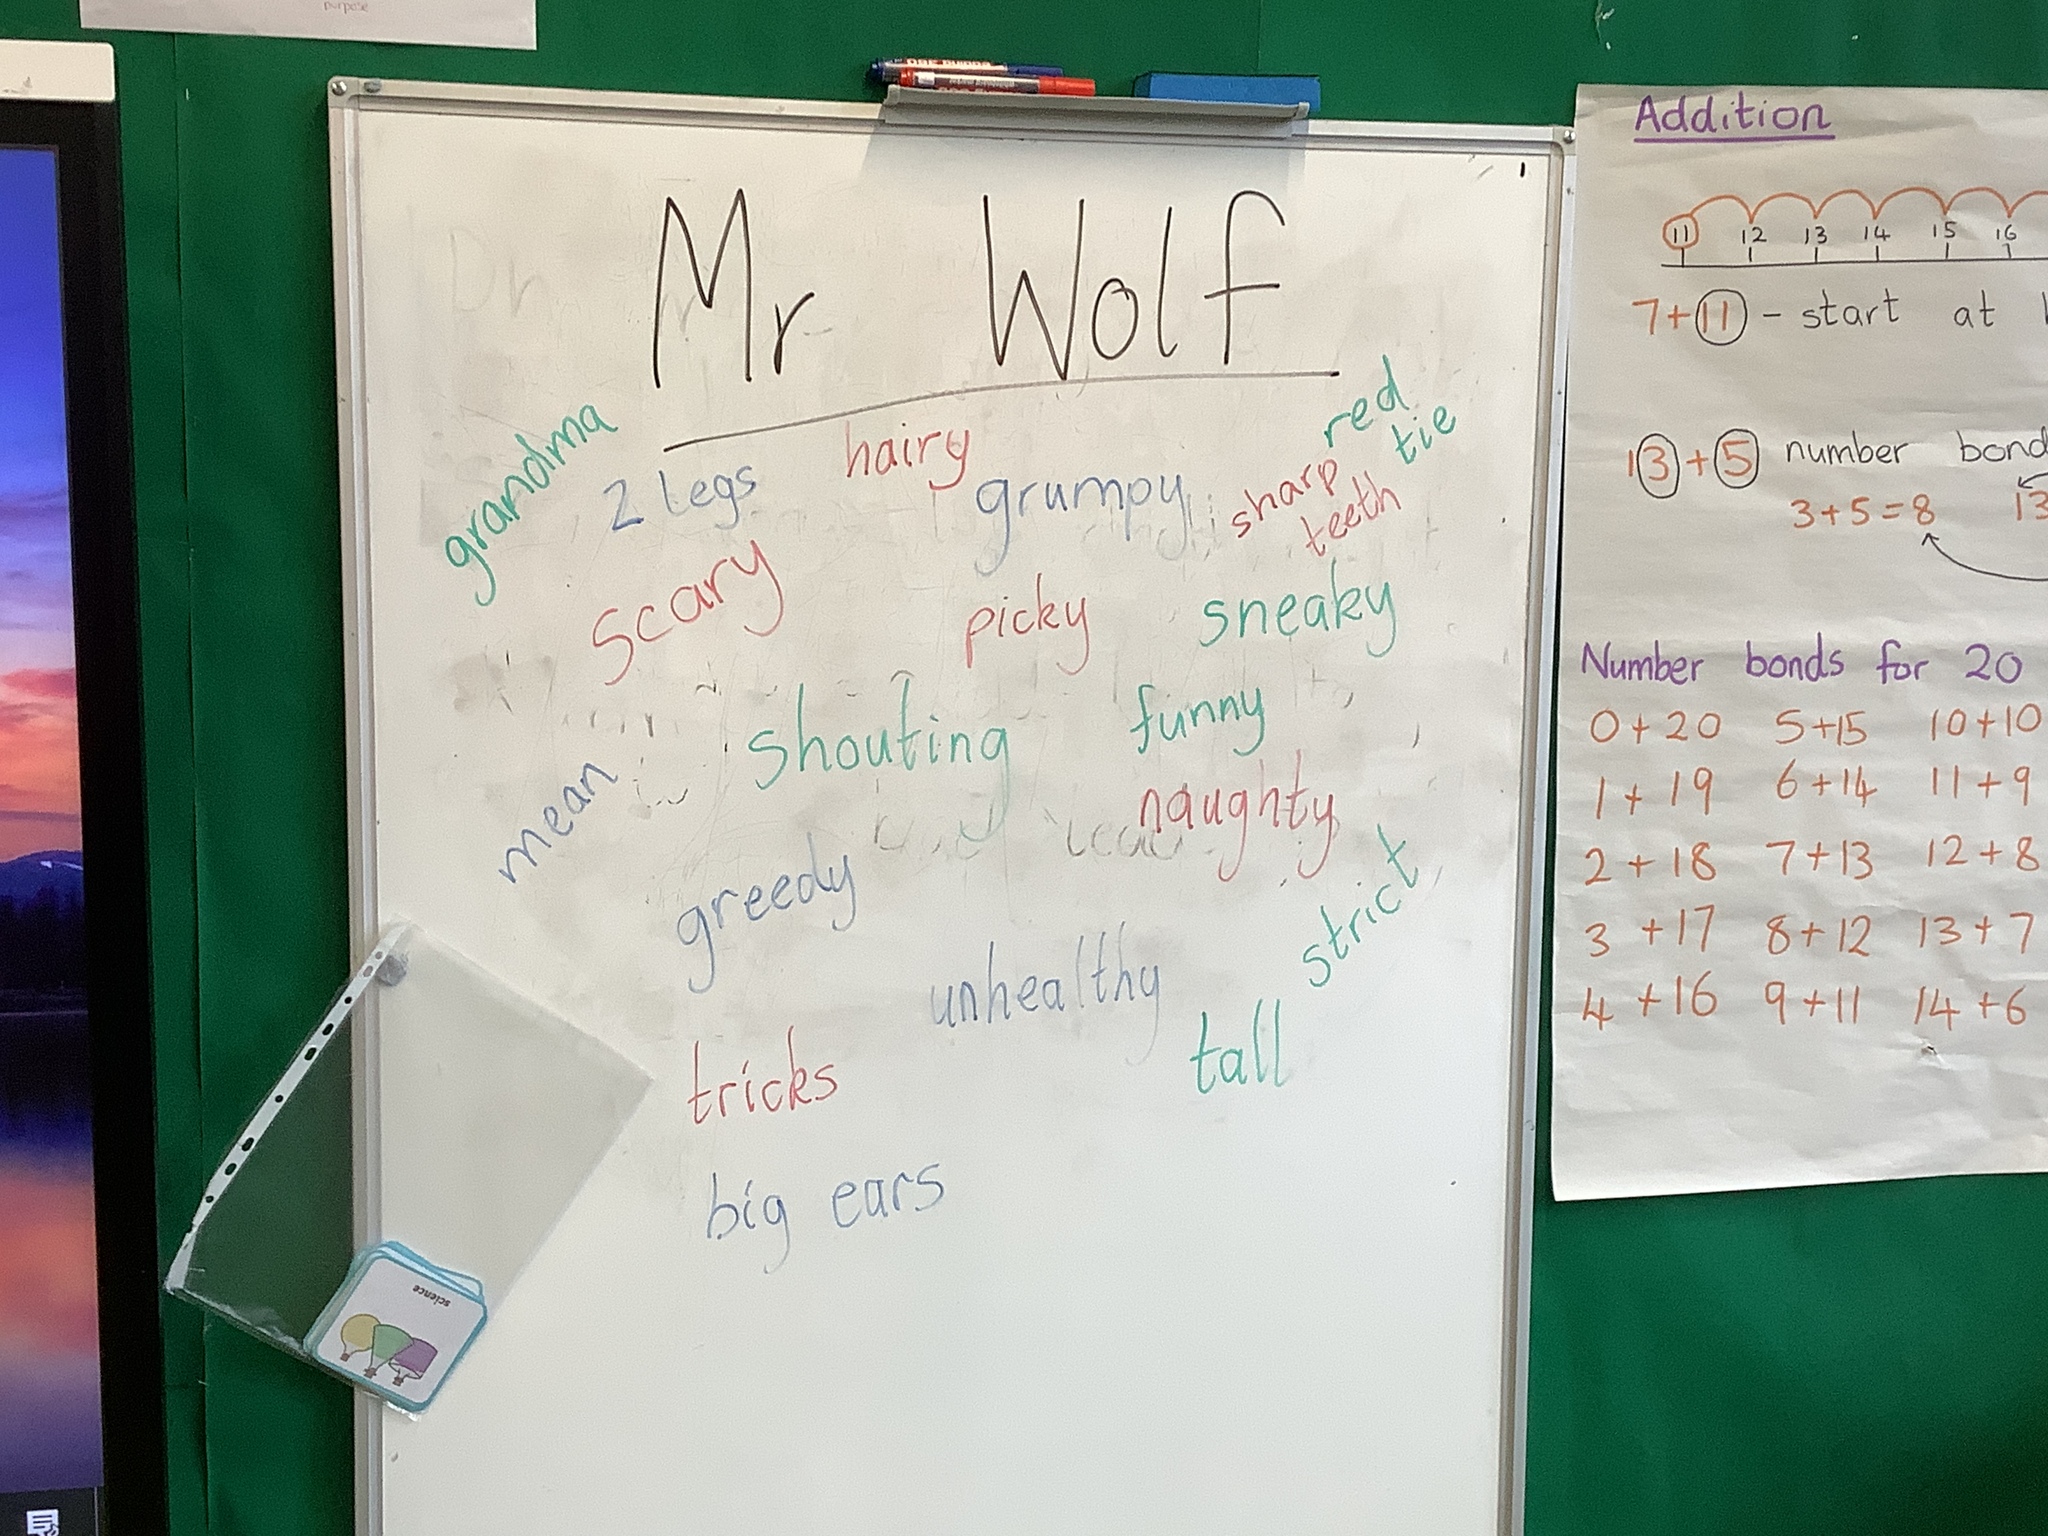 purpose
Mr Wolf
grandma
2 legs
hairy
grumpy
sharp
teeth
red
tie
scary
picky
sneaky
shouting
funny
mean
naughty
greedy
strict
unhealthy
tricks
tall
big ears
science
Addition
11 12 13 14 15 16
7+11 - start at
13+5 number bond
3+5=8 13
Number bonds for 20
0+20 5+15 10+10
1+19 6+14 11+9
2+18 7+13 12+8
3+17 8+12 13+7
4+16 9+11 14+6